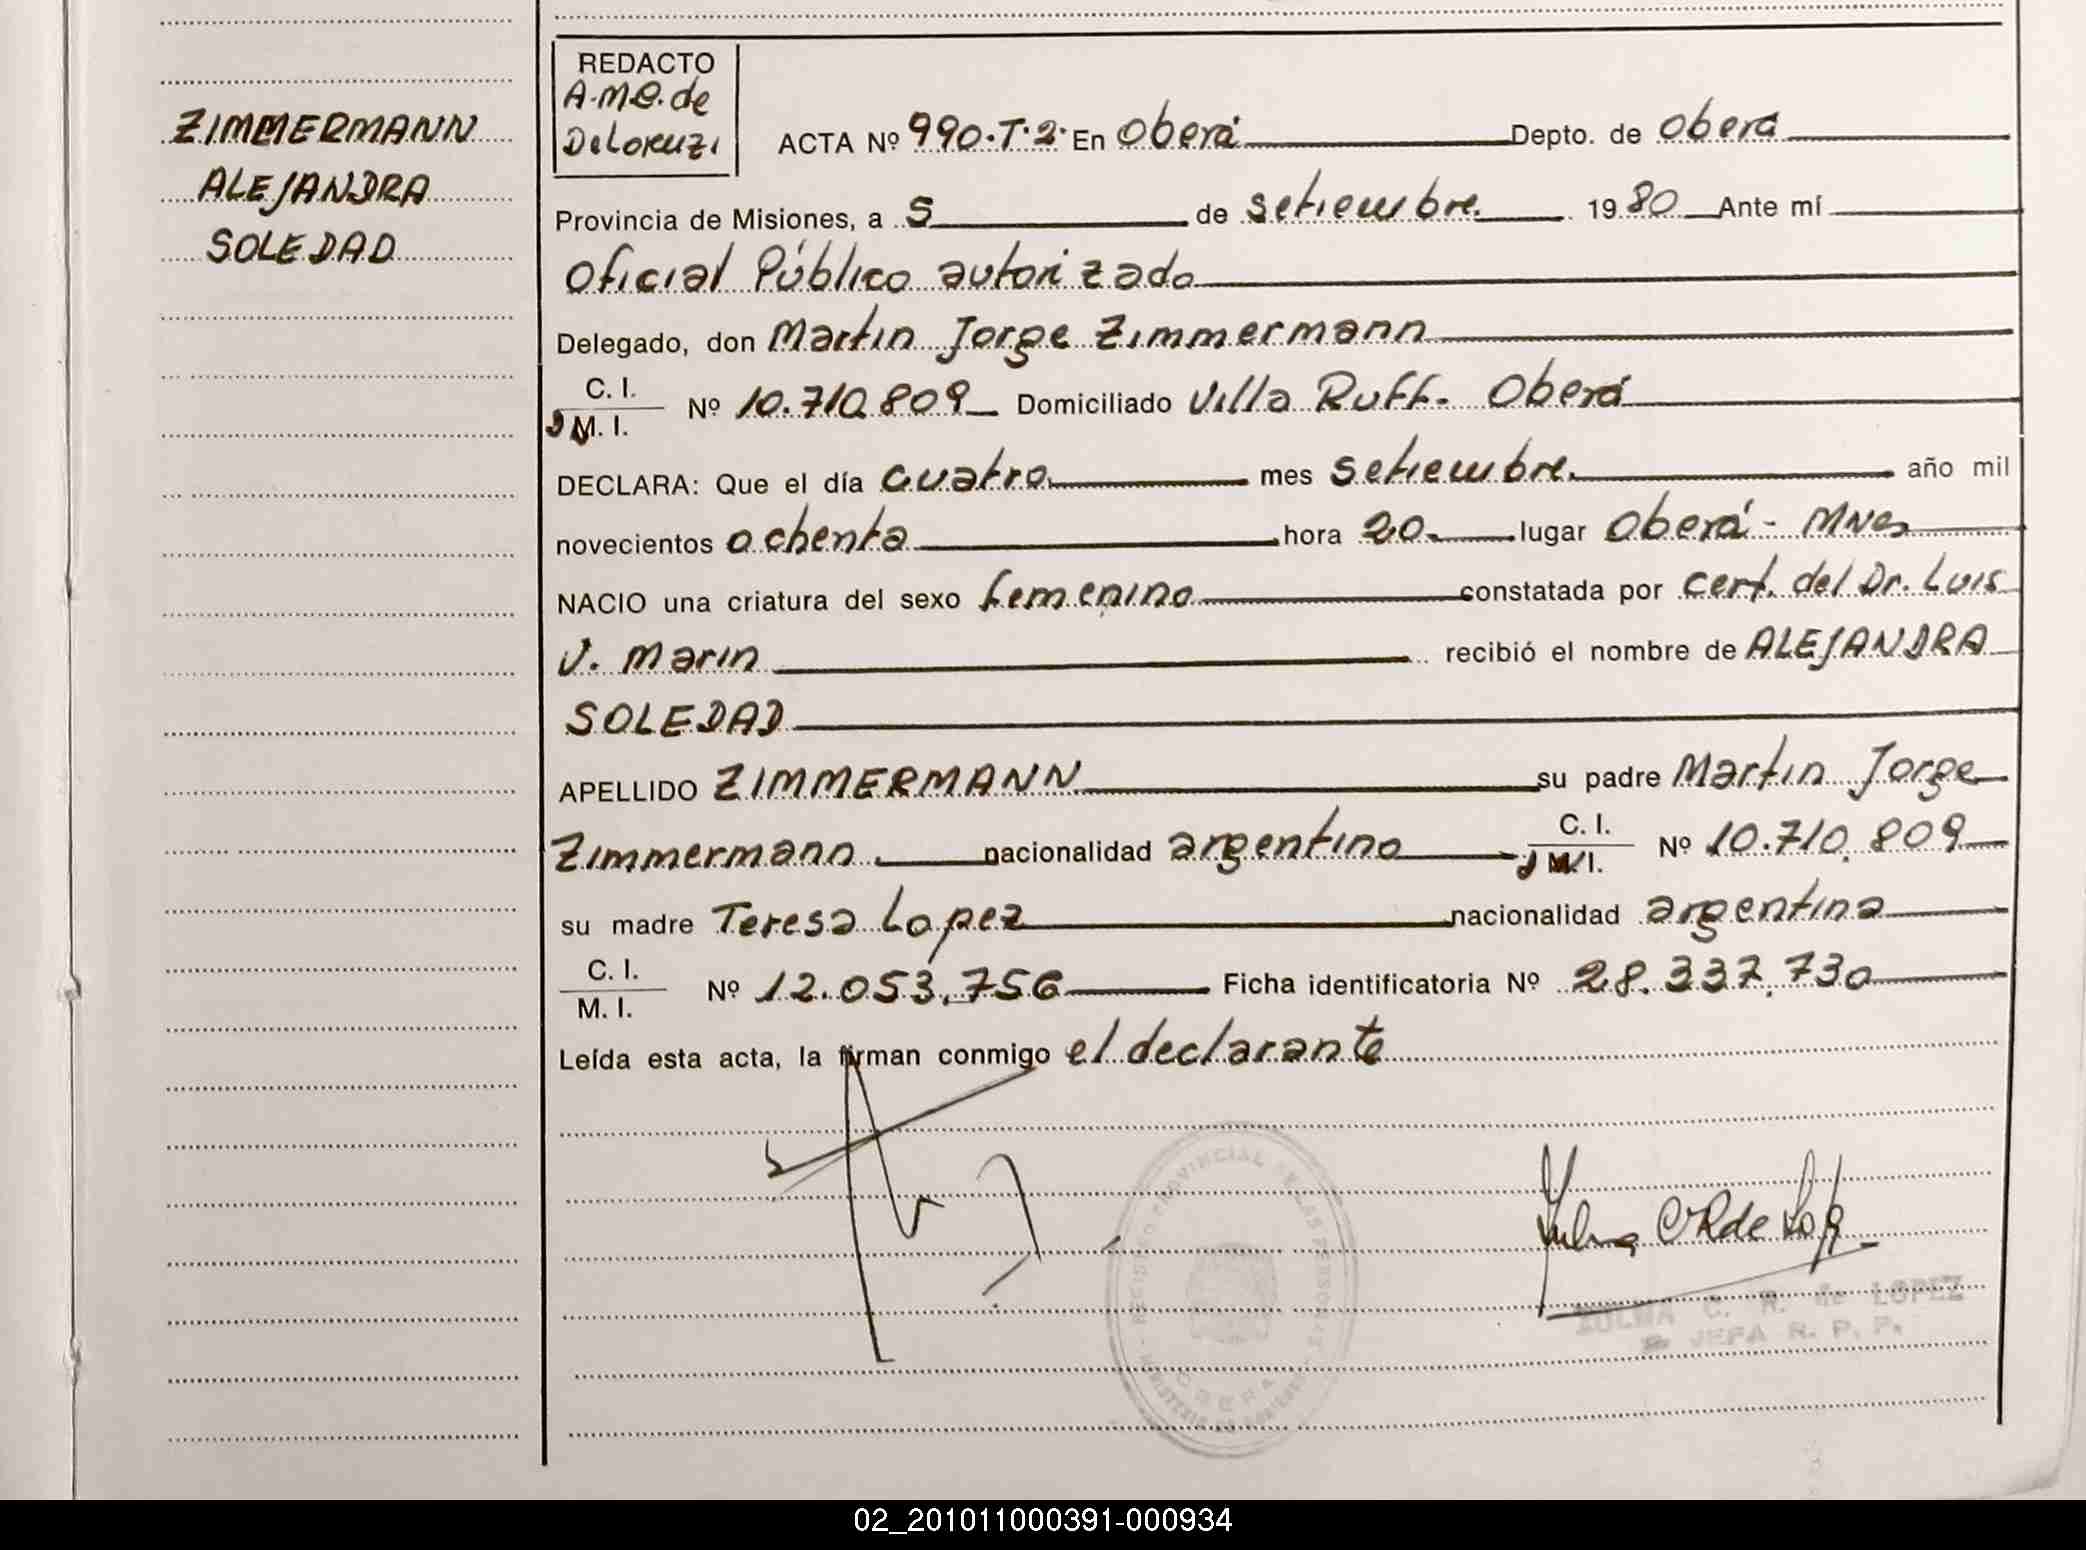 ZIMMERMANN
ALEJANDRA
SOLEDAD
REDACTO
A.M.C. de
ACTA Nº 990.T.2. En Oberá Depto. de Oberá
Provincia de Misiones, a 5 de setiembre 1980 Ante mí
Oficial Público autorizado
Delegado, don Martin Jorge Zimmermann
C. I.
M. I. Nº 10.710.809 Domiciliado Villa Ruff. Oberá
DECLARA: Que el día cuatro mes setiembre año mil
novecientos ochenta hora 20 lugar Oberá - Mnes
NACIO una criatura del sexo femenino constatada por cert. del Dr. Luis
V. Marin recibió el nombre de ALEJANDRA
SOLEDAD
APELLIDO ZIMMERMANN su padre Martin Jorge
Zimmermann nacionalidad argentino C. I. M. I. Nº 10.710.809
su madre Teresa Lopez nacionalidad argentina
C. I.
M. I. Nº 12.053.756 Ficha identificatoria Nº 28.337.730
Leída esta acta, la firman conmigo el declarante
REGISTRO PROVINCIAL DE LAS PERSONAS
OBERA
ZULMA C. R. de LOPEZ
JEFA R. P. P.
02_201011000391-000934